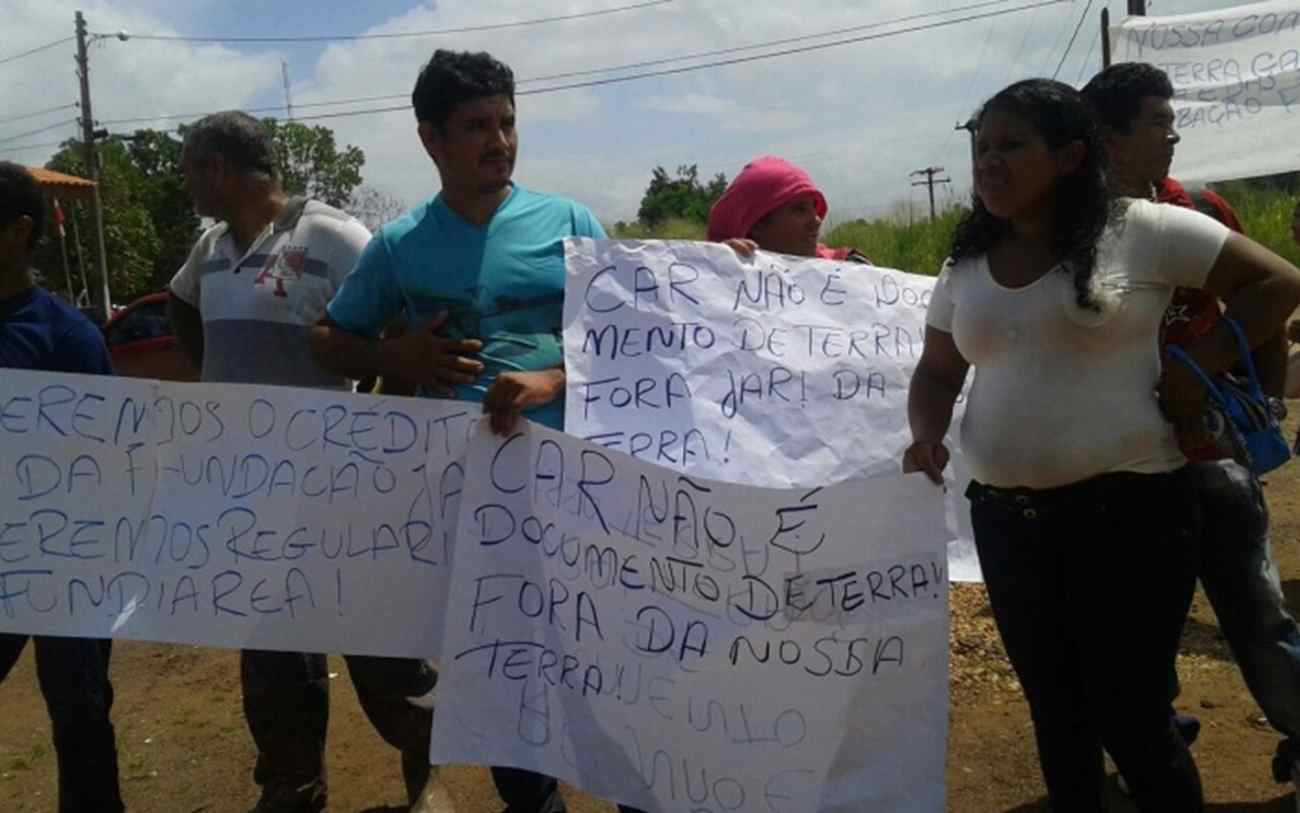 NOSSA
TERRA
E DAS
BAÇÃO E
CAR NÃO É DOCU
MENTO DE TERRA
FORA JARI DA
TERRA!
EREMOS O CRÉDITO
DA FHUNDACÃO JA
EREMOS REGULARI
FUNDIÁREA!
CAR NÃO É
DOCUMENTO DE TERRA!
FORA DA NOSSA
TERRA!